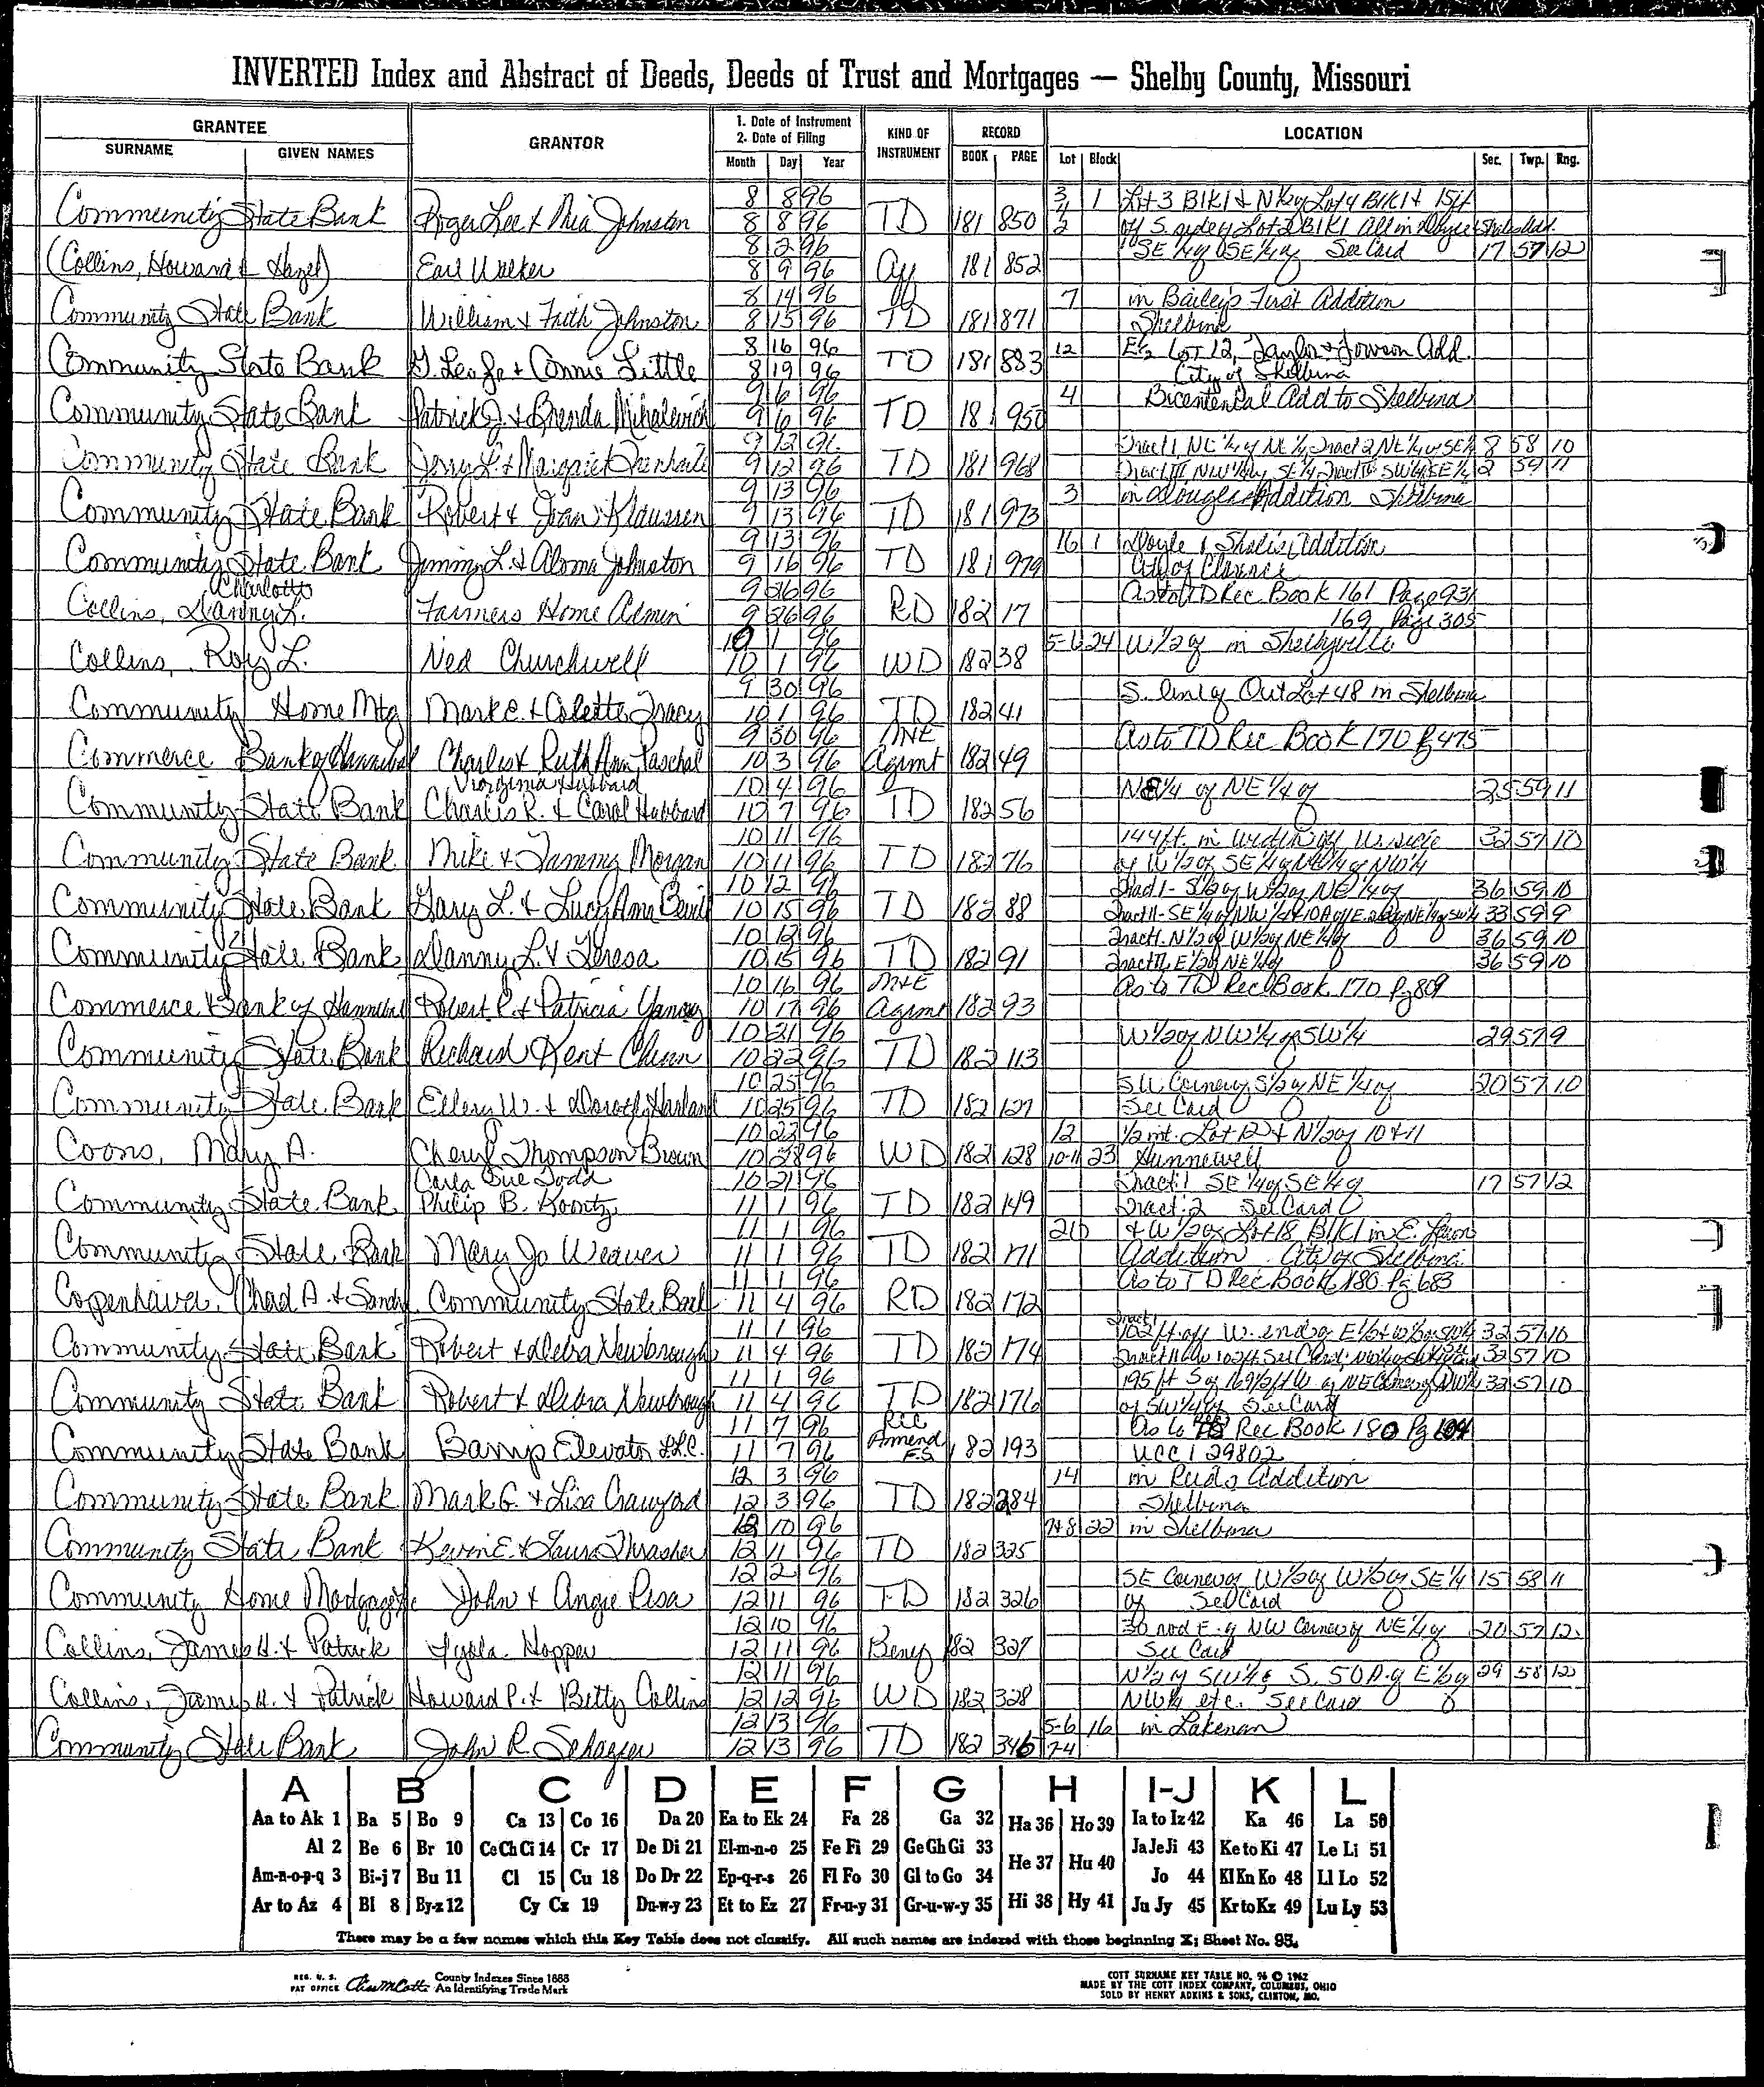 INVERTED Index and Abstract of Deeds, Deeds of Trust and Mortgages — Shelby County, Missouri
GRANTEE GRANTOR 1. Date of Instrument 2. Date of Filing KIND OF INSTRUMENT RECORD LOCATION
SURNAME GIVEN NAMES Month Day Year BOOK PAGE Lot Block Sec. Twp. Rng.
8 8 96 3 1 Lot 3 Blk 1 & N ½ of Lot 4 Blk 1 & 15 ft
Community State Bank Roger Lee & Mia Johnston 8 8 96 TD 181 850 4 2 off S. side of Lot 2 Blk 1 all in
8 2 96 SE ¼ of SE ¼ of See Card 17 57 12
(Collins, Howard & Hazel) Earl Walker 8 9 96 181 852
8 14 96 7 in Bailey's First Addition
Community State Bank William & Faith Johnston 8 15 96 TD 181 871 Shelbina
8 16 96 12 E½ Lot 12, Taylor & Towson Add.
Community State Bank G. Leo Jr & Connie Little 8 19 96 TD 181 883 City of Shelbina
9 6 96 4 Bicentenial Add to Shelbina
Community State Bank Patrick J. & Brenda Mihalevich 9 6 96 TD 181 950
9 12 96 Tract 1, NE ¼ of NE ¼, Tract 2 NE ¼ of SE ¼ 8 58 10
Community State Bank Jerry L. & Margaret 9 12 96 TD 181 968 Tract III NW ¼ of SE ¼ Tract IV SW ¼ SE ¼ 2 59 11
9 13 96 3 in Douglas Addition Shelbina
Community State Bank Robert & Joan Klaussen 9 13 96 TD 181 973
9 13 96 16 1 Doyle & Addition
Community State Bank Jimmy L. & Aloma Johnston 9 16 96 TD 181 979 City of Clarence
Charlotte 9 26 96 As to TD Rec. Book 161 Page 931
Collins, Danny L. Farmers Home Admin 9 26 96 RD 182 17 169 Page 305
10 1 96 5-6 24 W ½ of in Shelbyville
Collins, Roy L. Ned Churchwell 10 1 96 WD 182 38
9 30 96 S. end of Out Lot 48 in Shelbina
Community Home Mtg Mark E. & Colette Tracy 10 1 96 TD 182 41
9 30 96 As to TD Rec Book 170 Pg 475
Commerce Bank of Hannibal Charles & Ruth Ann Paschal 10 3 96 Agrmt 182 49
Virginia Hubbard 10 4 96 NE ¼ of NE ¼ of 25 59 11
Community State Bank Charles R. & Carol Hubbard 10 7 96 TD 182 56
10 11 96 144 ft. in width off W. side 32 57 10
Community State Bank Mike & Tammy Morgan 10 11 96 TD 182 76 of W ½ of SE ¼ of NW ¼ of NW ¼
10 12 96 Tract 1 - S ½ of W ½ of NE ¼ of 36 59 10
Community State Bank Gary L. & Lucy Ann 10 15 96 TD 182 88 Tract II - SE ¼ of NW ¼ & 10 A of E. side NE ¼ of SW ¼ 33 59 9
10 12 96 Tract I. N ½ of W ½ of NE ¼ of 36 59 10
Community State Bank Danny L. & Teresa 10 15 96 TD 182 91 Tract II, E ½ of NE ¼ of 36 59 10
10 16 96 M+E As to TD Rec Book 170 Pg 809
Commerce Bank of Hannibal Robert P. & Patricia Yancey 10 17 96 Agrmt 182 93
10 21 96 W ½ of NW ¼ of SW ¼ 29 57 9
Community State Bank Richard Kent Chinn 10 22 96 TD 182 113
10 25 96 SW Corner of S ½ of NE ¼ of 20 57 10
Community State Bank Ellery W. & Dorothy Harland 10 25 96 TD 182 127 See Card
10 23 96 12 ½ int. Lot 12 & N ½ of 10 & 11
Coons, Mary A. Cheryl Thompson Brown 10 28 96 WD 182 128 10-11 23 Hunnewell
Carla Sue Todd 10 21 96 Tract 1 SE ¼ of SE ¼ of 17 57 12
Community State Bank Philip B. Koontz 11 1 96 TD 182 149 Tract 2 See Card
11 1 96 & W ½ of Lot 18 Blk 1 in E.
Community State Bank Mary Jo Weaver 11 1 96 TD 182 171 Addition City of Shelbina
11 1 96 As to TD Rec Book 180 Pg 683
Copenhaver, Chad A. & Sandy Community State Bank 11 4 96 RD 182 172
11 1 96 Tract 1 102 ft off W. end of E ½ & W ½ of SW ¼ 32 57 10
Community State Bank Robert & Debra Newbrough 11 4 96 TD 182 174 32 57 10
11 1 96 195 ft S of 169 ½ ft W of NE Corner of NW ¼ 32 57 10
Community State Bank Robert & Debra Newbrough 11 4 96 TD 182 176 of SW ¼ of See Card
11 7 96 Rec As to Rec Book 180 Pg 104
Community State Bank Bamp Elevator L.L.C. 11 7 96 Amend F.S. 182 193 UCC 1 29802
12 3 96 14 in Reids Addition
Community State Bank Mark G. & Lisa Crawford 12 3 96 TD 182 284 Shelbina
12 10 96 7+8 22 in Shelbina
Community State Bank Kevin E. & Laura Thrasher 12 11 96 TD 182 325
12 2 96 SE Corner of W ½ of W ½ of SE ¼ 15 58 11
Community Home Mortgage John & Angie Pisa 12 11 96 TD 182 326 of See Card
12 10 96 30 rod E. of NW Corner of NE ¼ of 20 57 12
Collins, James H. & Patrick Hopper 12 11 96 Benef 182 327 See Card
12 11 96 N ½ of SW ¼ & S. 50 A. of E ½ of 29 58 12
Collins, James H. & Patrick Howard P. & Betty Collins 12 12 96 WD 182 328 NW ¼ etc. See Card
12 13 96 5-6 16 in Lakenan
Community State Bank John R. 12 13 96 TD 182 346 7-4
A B C D E F G H I-J K L
Aa to Ak 1 Ba 5 Bo 9 Ca 13 Co 16 Da 20 Ea to Ek 24 Fa 28 Ga 32 Ha 36 Ho 39 Ia to Iz 42 Ka 46 La 50
Al 2 Be 6 Br 10 Ce Ch Ci 14 Cr 17 De Di 21 El-m-n-o 25 Fe Fi 29 Ge Gh Gi 33 He 37 Hu 40 Ja Je Ji 43 Ke to Ki 47 Le Li 51
Am-n-o-p-q 3 Bi-j 7 Bu 11 Cl 15 Cu 18 Do Dr 22 Ep-q-r-s 26 Fl Fo 30 Gl to Go 34 Jo 44 Kl Kn Ko 48 Ll Lo 52
Ar to Az 4 Bl 8 By-z 12 Cy Cz 19 Du-w-y 23 Et to Ez 27 Fr-u-y 31 Gr-u-w-y 35 Hi 38 Hy 41 Ju Jy 45 Kr to Kz 49 Lu Ly 53
There may be a few names which this Key Table does not classify. All such names are indexed with those beginning X; Sheet No. 95.
REG. U. S. PAT OFFICE County Indexes Since 1888 An Identifying Trade Mark
COTT SURNAME KEY TABLE NO. 96 © 1962
MADE BY THE COTT INDEX COMPANY, COLUMBUS, OHIO
SOLD BY HENRY ADKINS & SONS, CLINTON, MO.